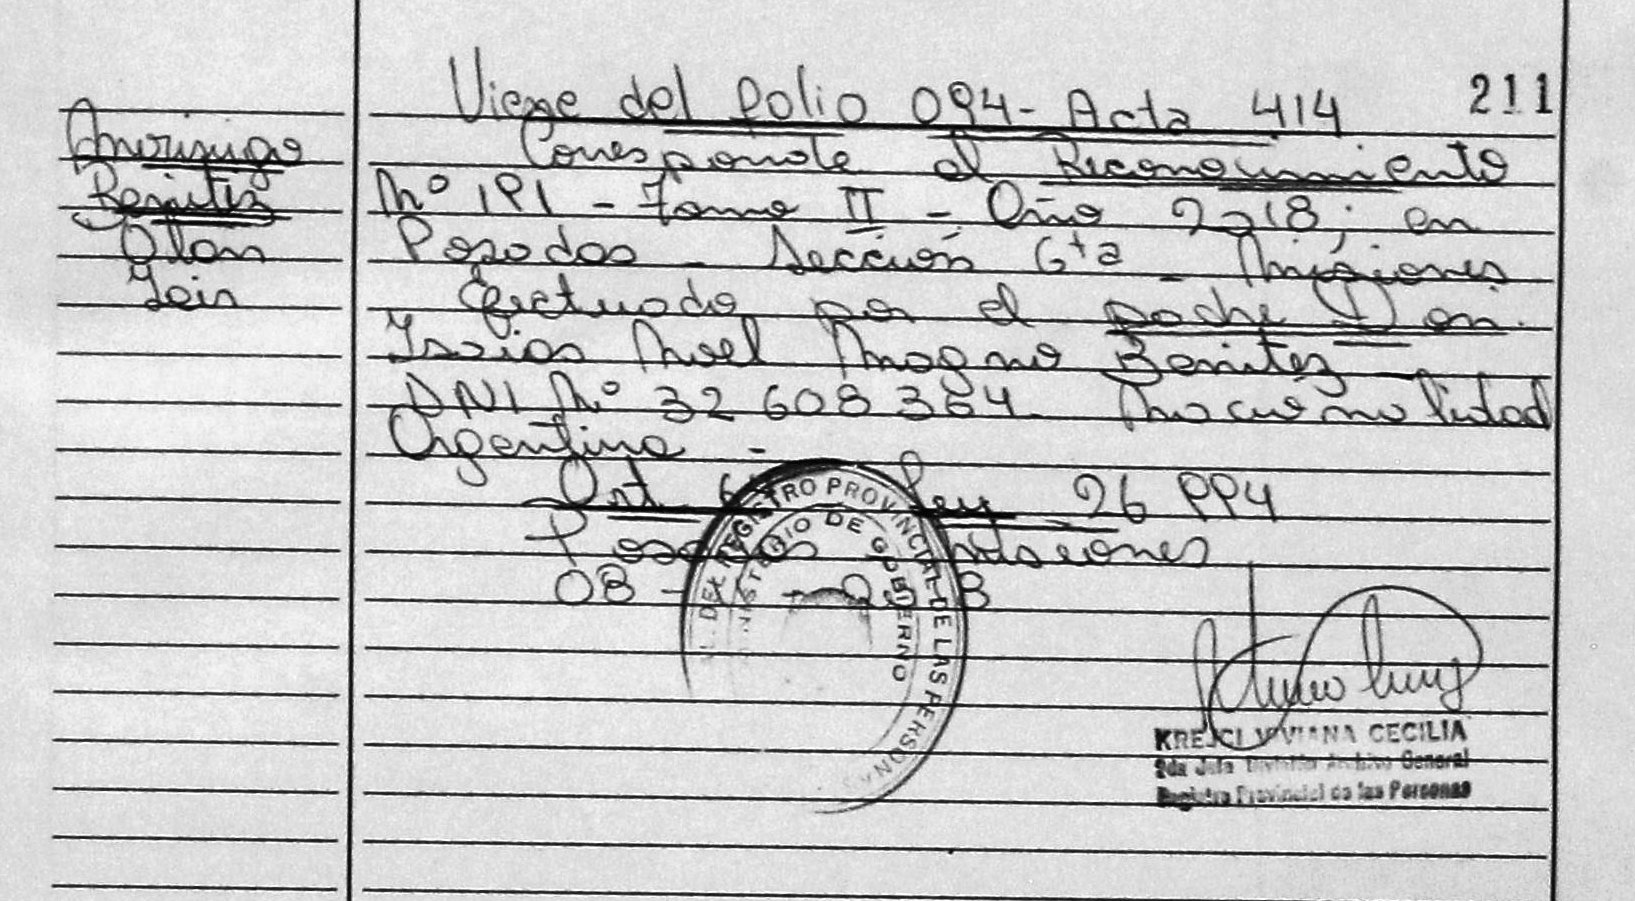 211
Viene del folio 094 - Acta 414
Morinigo
Benitez
Alan
Jair
Corresponde al Reconocimiento
Nº 191 - Tomo II - Año 2018; en
Posadas - Sección 6ta - Misiones
Efectuado por el padre Don
Isaias Noel Magno Benitez
DNI Nº 32 608 364. Nacionalidad
Argentina -
Art Ley 26 994
Posadas Misiones
08
REGISTRO PROVINCIAL DE LAS PERSONAS
MINISTERIO DE GOBIERNO
KREJCI VIVIANA CECILIA
2da Jefa División Archivo General
Registro Provincial de las Personas